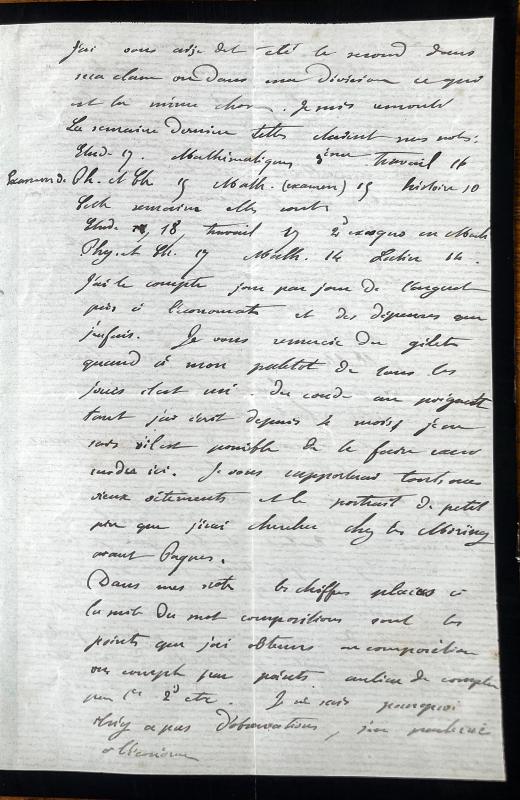 J'ai vous ai-je dit été le second dans
ma classe ou dans ma division ce qui
est la même chose. Je suis
La semaine dernière telles étaient mes notes:
Etude 17. Mathématiques 3ème travail 16
Examen de Ph. et Ch. 15 Math. (examen) 15 histoire 10
Cette semaine elles sont:
Etude 18, travail 17 2d en Math
Phy. et Ch. 17 Math. 14 Latin 14.
J'ai le compte jour par jour de l'argent
pris à l'économat et des dépenses que
j'en fais. Je vous remercie du gilet
quand à mon paletot de tous les
jours il est usé du coude au poignet
tant j'ai écrit depuis 4 mois, je ne
sais s'il est possible de le faire
ici. Je vous rapporterai tous mes
vieux vêtements et le portrait de petit
père que j'irai chercher chez les
avant Pâques.
Dans mes notes les chiffres placés à
la suite du mot compositions sont les
points que j'ai obtenus en composition
on compte par points au lieu de compter
par 1er 2d etc. Je ne sais pourquoi
il n'y a pas d'observations, j'en parlerai
à l'économe